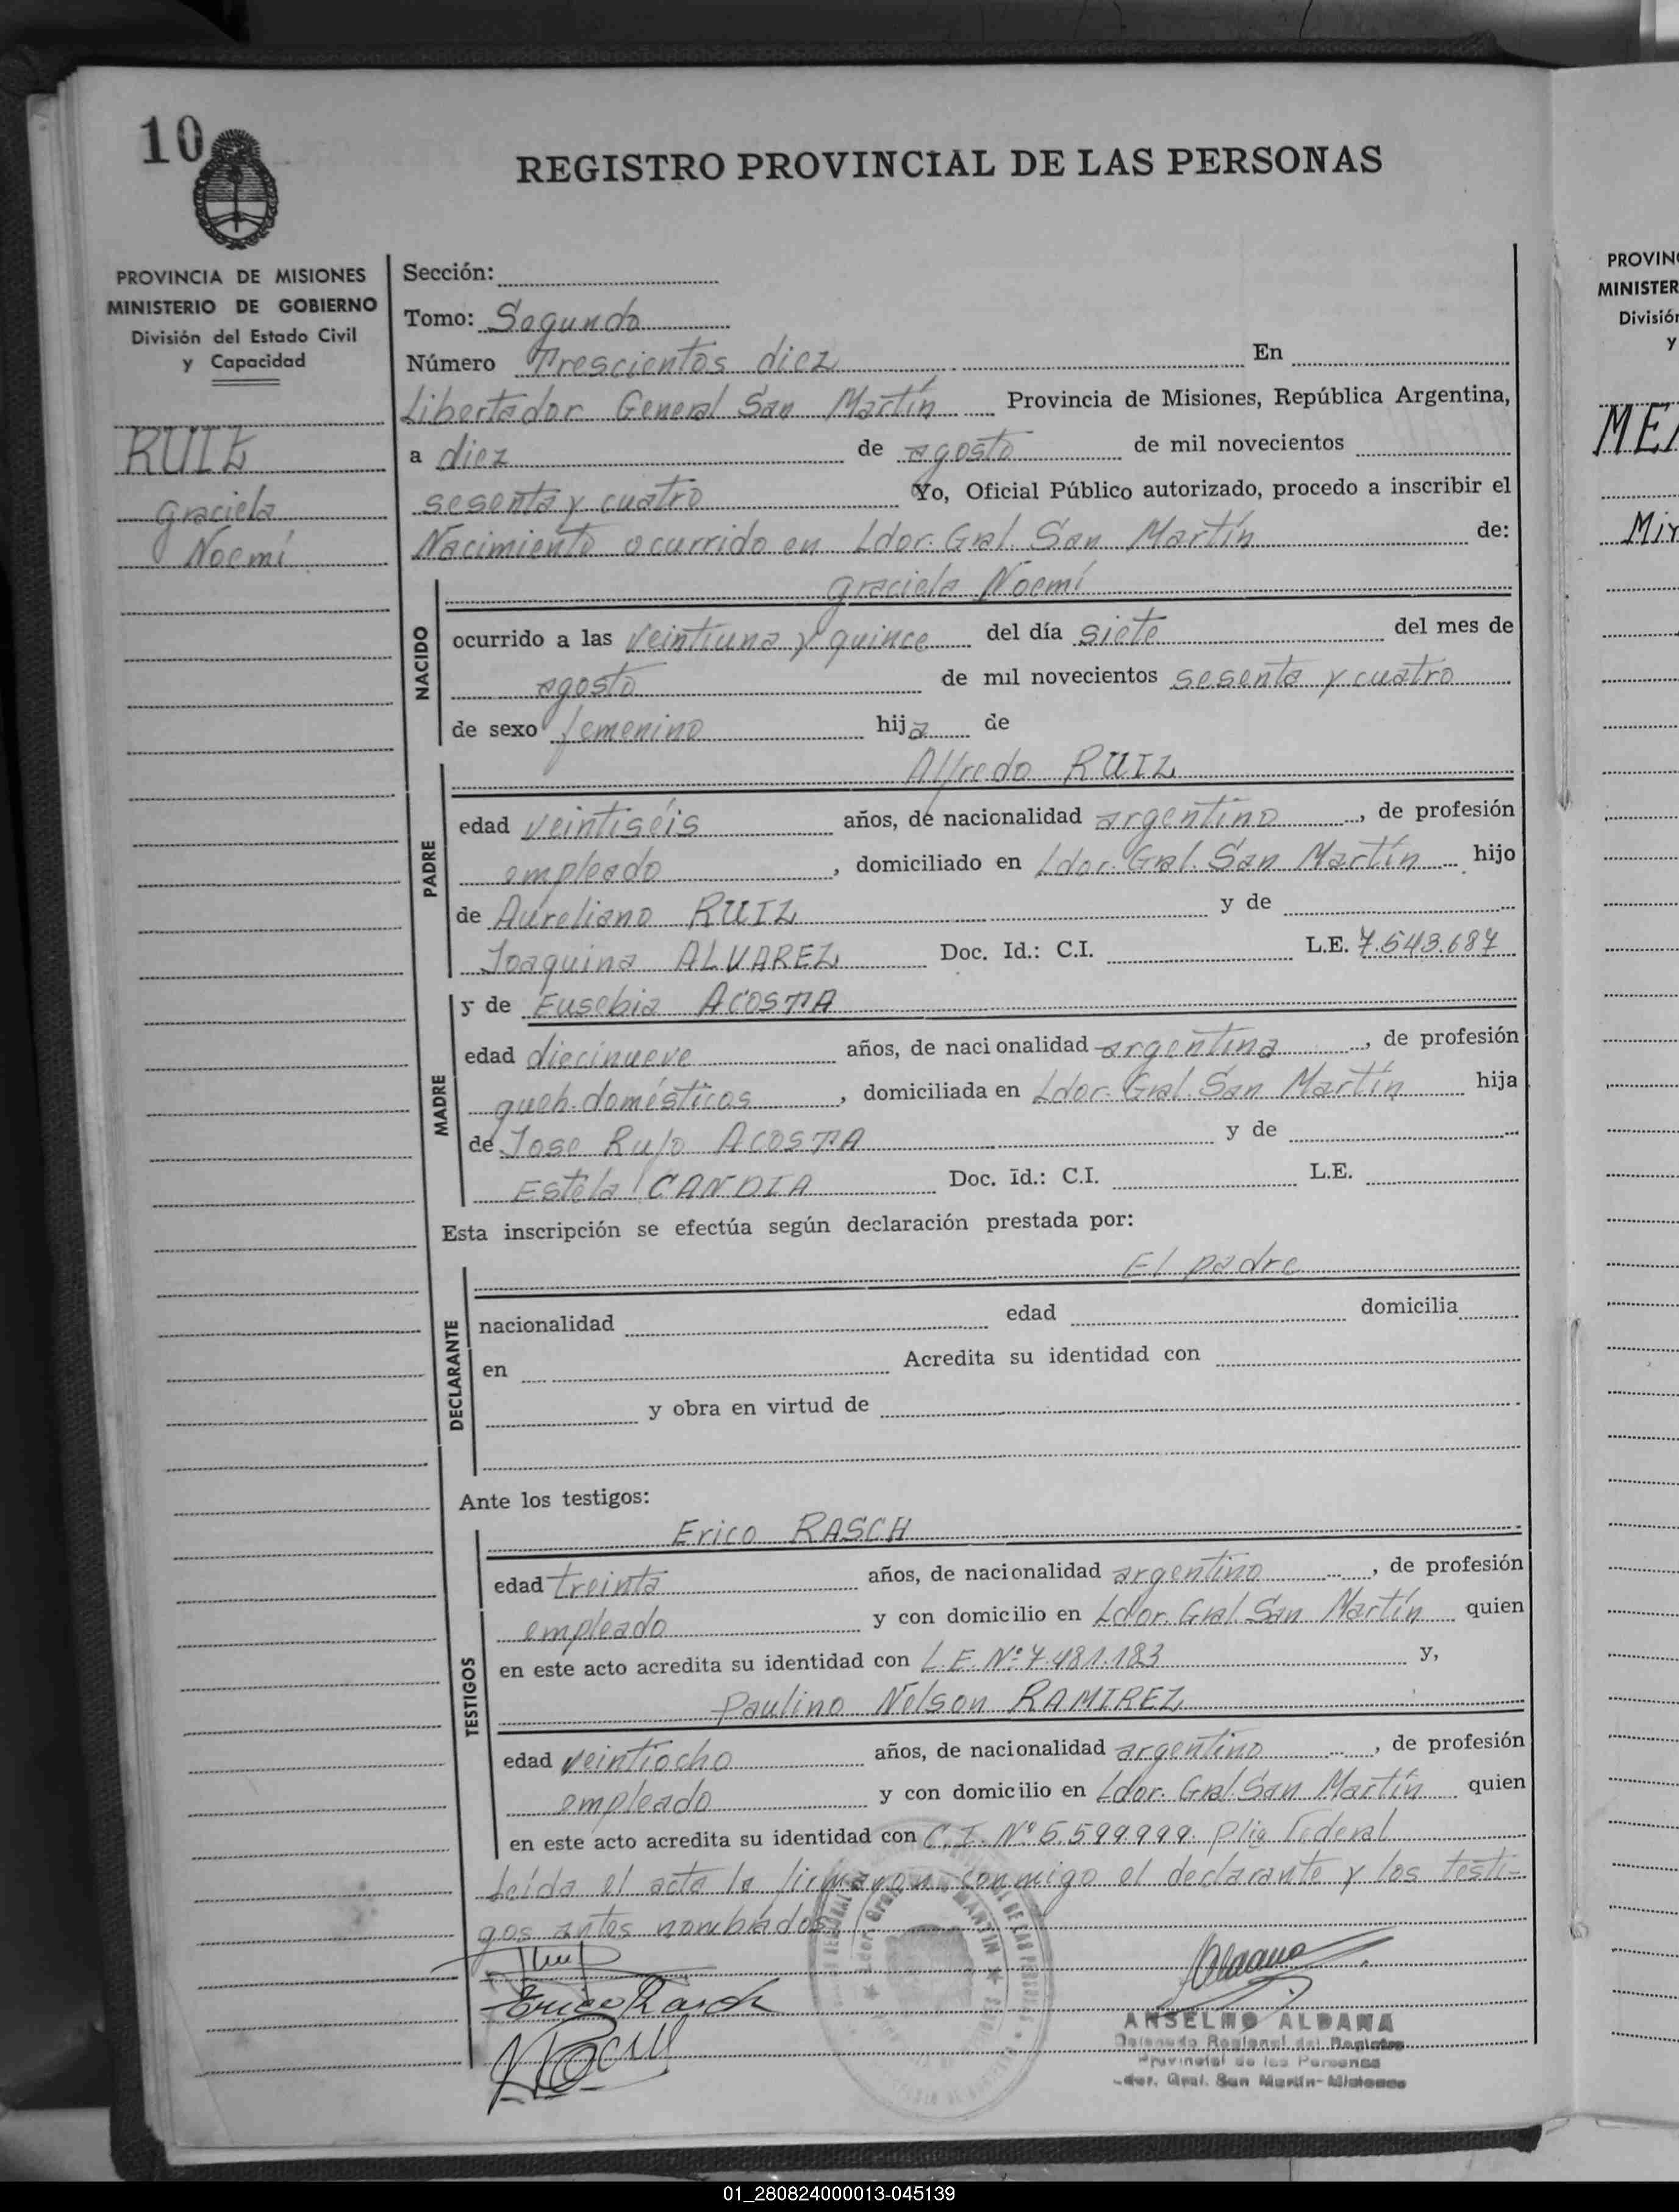 10
REGISTRO PROVINCIAL DE LAS PERSONAS
PROVINCIA DE MISIONES
MINISTERIO DE GOBIERNO
División del Estado Civil
y Capacidad
RUIZ
Graciela
Noemí
Sección:
Tomo: Segundo
Número Trescientos diez En
Libertador General San Martín Provincia de Misiones, República Argentina,
a diez de agosto de mil novecientos
sesenta y cuatro Yo, Oficial Público autorizado, procedo a inscribir el
Nacimiento ocurrido en Ldor. Gral. San Martín de:
NACIDO
Graciela Noemí
ocurrido a las veintiuna y quince del día siete del mes de
agosto de mil novecientos sesenta y cuatro
de sexo femenino hija de
PADRE
Alfredo RUIZ
edad veintiséis años, de nacionalidad argentino, de profesión
empleado, domiciliado en Ldor. Gral. San Martín hijo
de Aureliano RUIZ y de
Joaquina ALVAREZ Doc. Id.: C.I. L.E. 7.543.687
MADRE
y de Eusebia ACOSTA
edad diecinueve años, de nacionalidad argentina, de profesión
queh. domésticos, domiciliada en Ldor. Gral. San Martín hija
de Jose Rufo ACOSTA y de
Estela CANDIA Doc. Id.: C.I. L.E.
Esta inscripción se efectúa según declaración prestada por:
DECLARANTE
El padre
nacionalidad edad domicilia
en Acredita su identidad con
y obra en virtud de
Ante los testigos:
TESTIGOS
Erico RASCH
edad treinta años, de nacionalidad argentino, de profesión
empleado y con domicilio en Ldor. Gral. San Martín quien
en este acto acredita su identidad con L.E. Nº 7.481.183 y,
Paulino Nelson RAMIREZ
edad veintiocho años, de nacionalidad argentino, de profesión
empleado y con domicilio en Ldor. Gral. San Martín quien
en este acto acredita su identidad con C.I. Nº 5.599.999. Federal
Leída el acta la firmaron conmigo el declarante y los testi-
gos antes nombrados
Erico Rasch
ANSELMO ALDANA
Delegado Regional del Registro
Provincial de las Personas
Ldor. Gral. San Martín-Misiones
PROVIN
MINISTER
División
y
ME
Mir
01_280824000013-045139